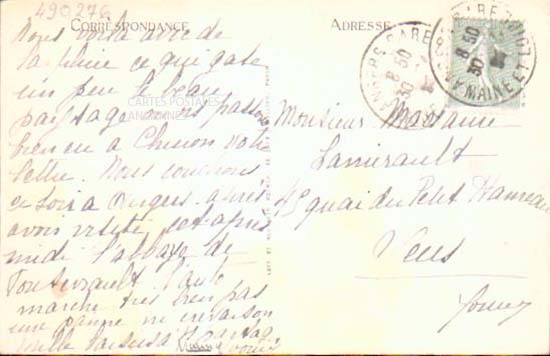 490276
CORRESPONDANCE
ADRESSE
Nous voilà avec de
la pluie ce qui gate
un peu le beau
paysage avons passé
à Chinon votre
lettre. Nous couchons
ce soir à Angers après
avoir visité cet après
midi l'abbaye de
Fontevrault. L'auto
marche très bien pas
une panne ni crevaison
CARTES POSTALES
ANCIENNES
Monsieur Madame
Lamirault
45 quai du Petit Hameau
Sens
Yonne
ANGERS GARE
8 50
30
MAINE ET L
8 50
30